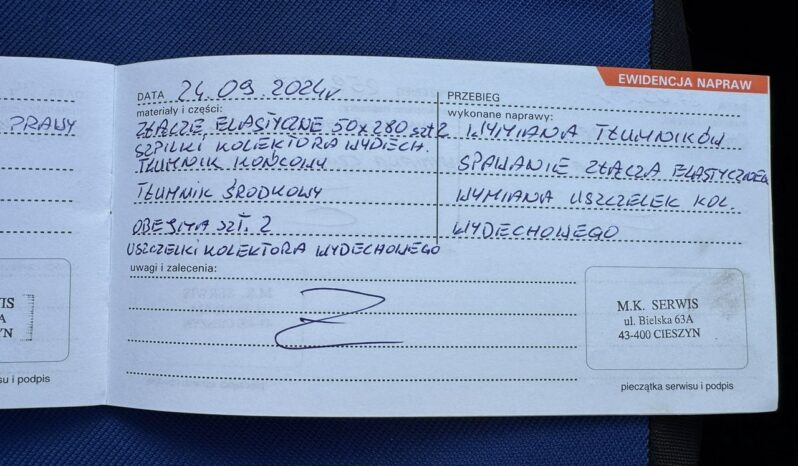 PRAWY
RWIS
A
ZYN
su i podpis
EWIDENCJA NAPRAW
DATA 24.09.2024r
PRZEBIEG
materiały i części:
ZŁĄCZE ELASTYCZNE 50x280 szt 2
SZPILKI KOLEKTORA WYDECH.
TŁUMNIK KOŃCOWY
TŁUMNIK ŚRODKOWY
OBEJMA SZT. 2
USZCZELKI KOLEKTORA WYDECHOWEGO
wykonane naprawy:
WYMIANA TŁUMNIKÓW
SPAWANIE ZŁĄCZA ELASTYCZNEG
WYMIANA USZCZELEK KOL.
WYDECHOWEGO
uwagi i zalecenia:
M.K. SERWIS
ul. Bielska 63A
43-400 CIESZYN
pieczątka serwisu i podpis